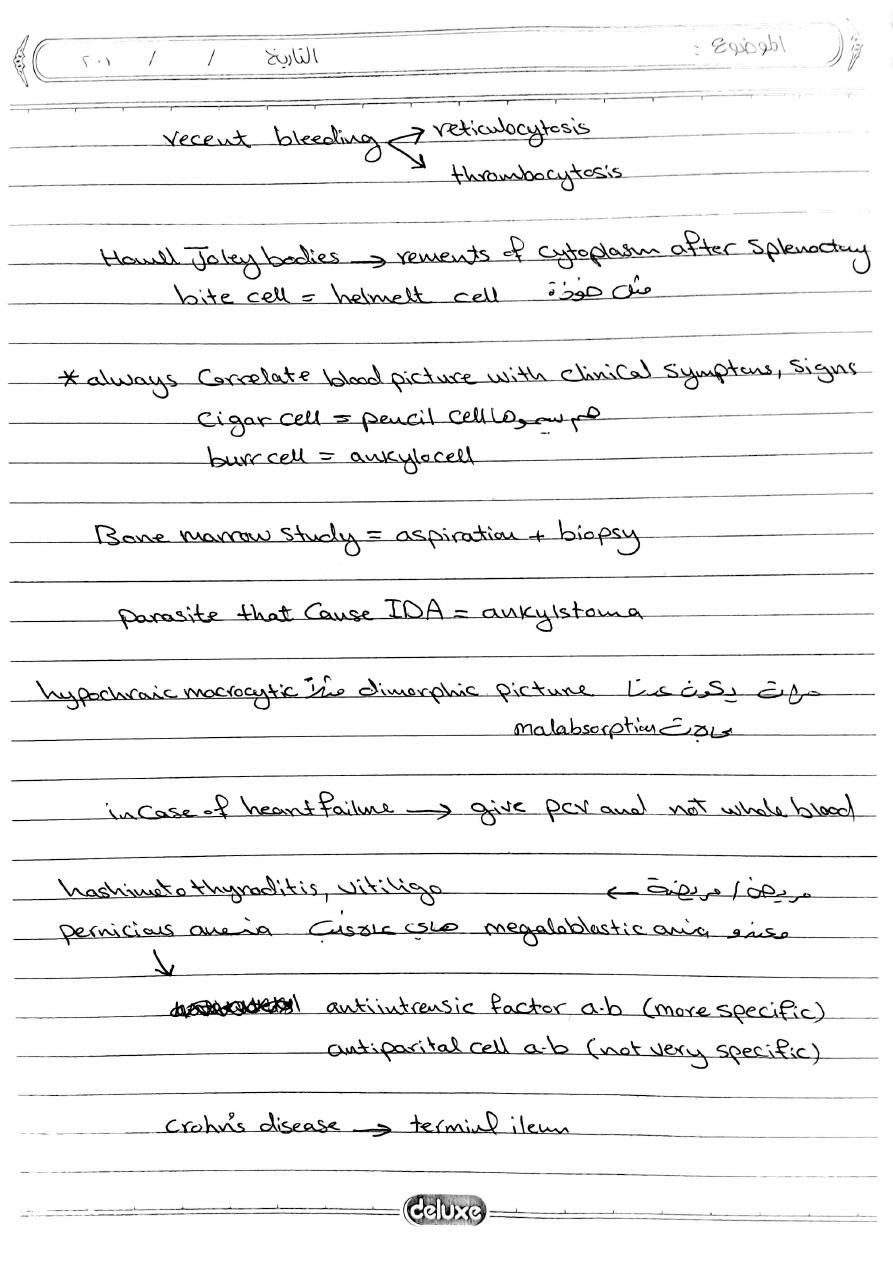 الموضوع :
التاريخ / / ٢٠١
recent bleeding → reticulocytosis
→ thrombocytosis
Howell Joley bodies → rements of cytoplasm after splenoctmy
bite cell = helmelt cell مثل خوذة
* always Correlate blood picture with clinical symptens, signs
cigar cell = pencil cell هم
burr cell = ankylocell
Bone marrow study = aspiration + biopsy
parasite that cause IDA = ankylstoma
مرات يكون عنا dimorphic picture مثلاً hypochraic macrocytic
malabsorption
incase of heart failure → give pcv and not whole blood
مريض / مريضة ← hashimoto thyroditis, vitiligo
megaloblastic ania pernicious anemia
↓
antiintrensic factor a.b (more specific)
antiparital cell a.b (not very specific)
crohn's disease → termiul ileum
deluxe